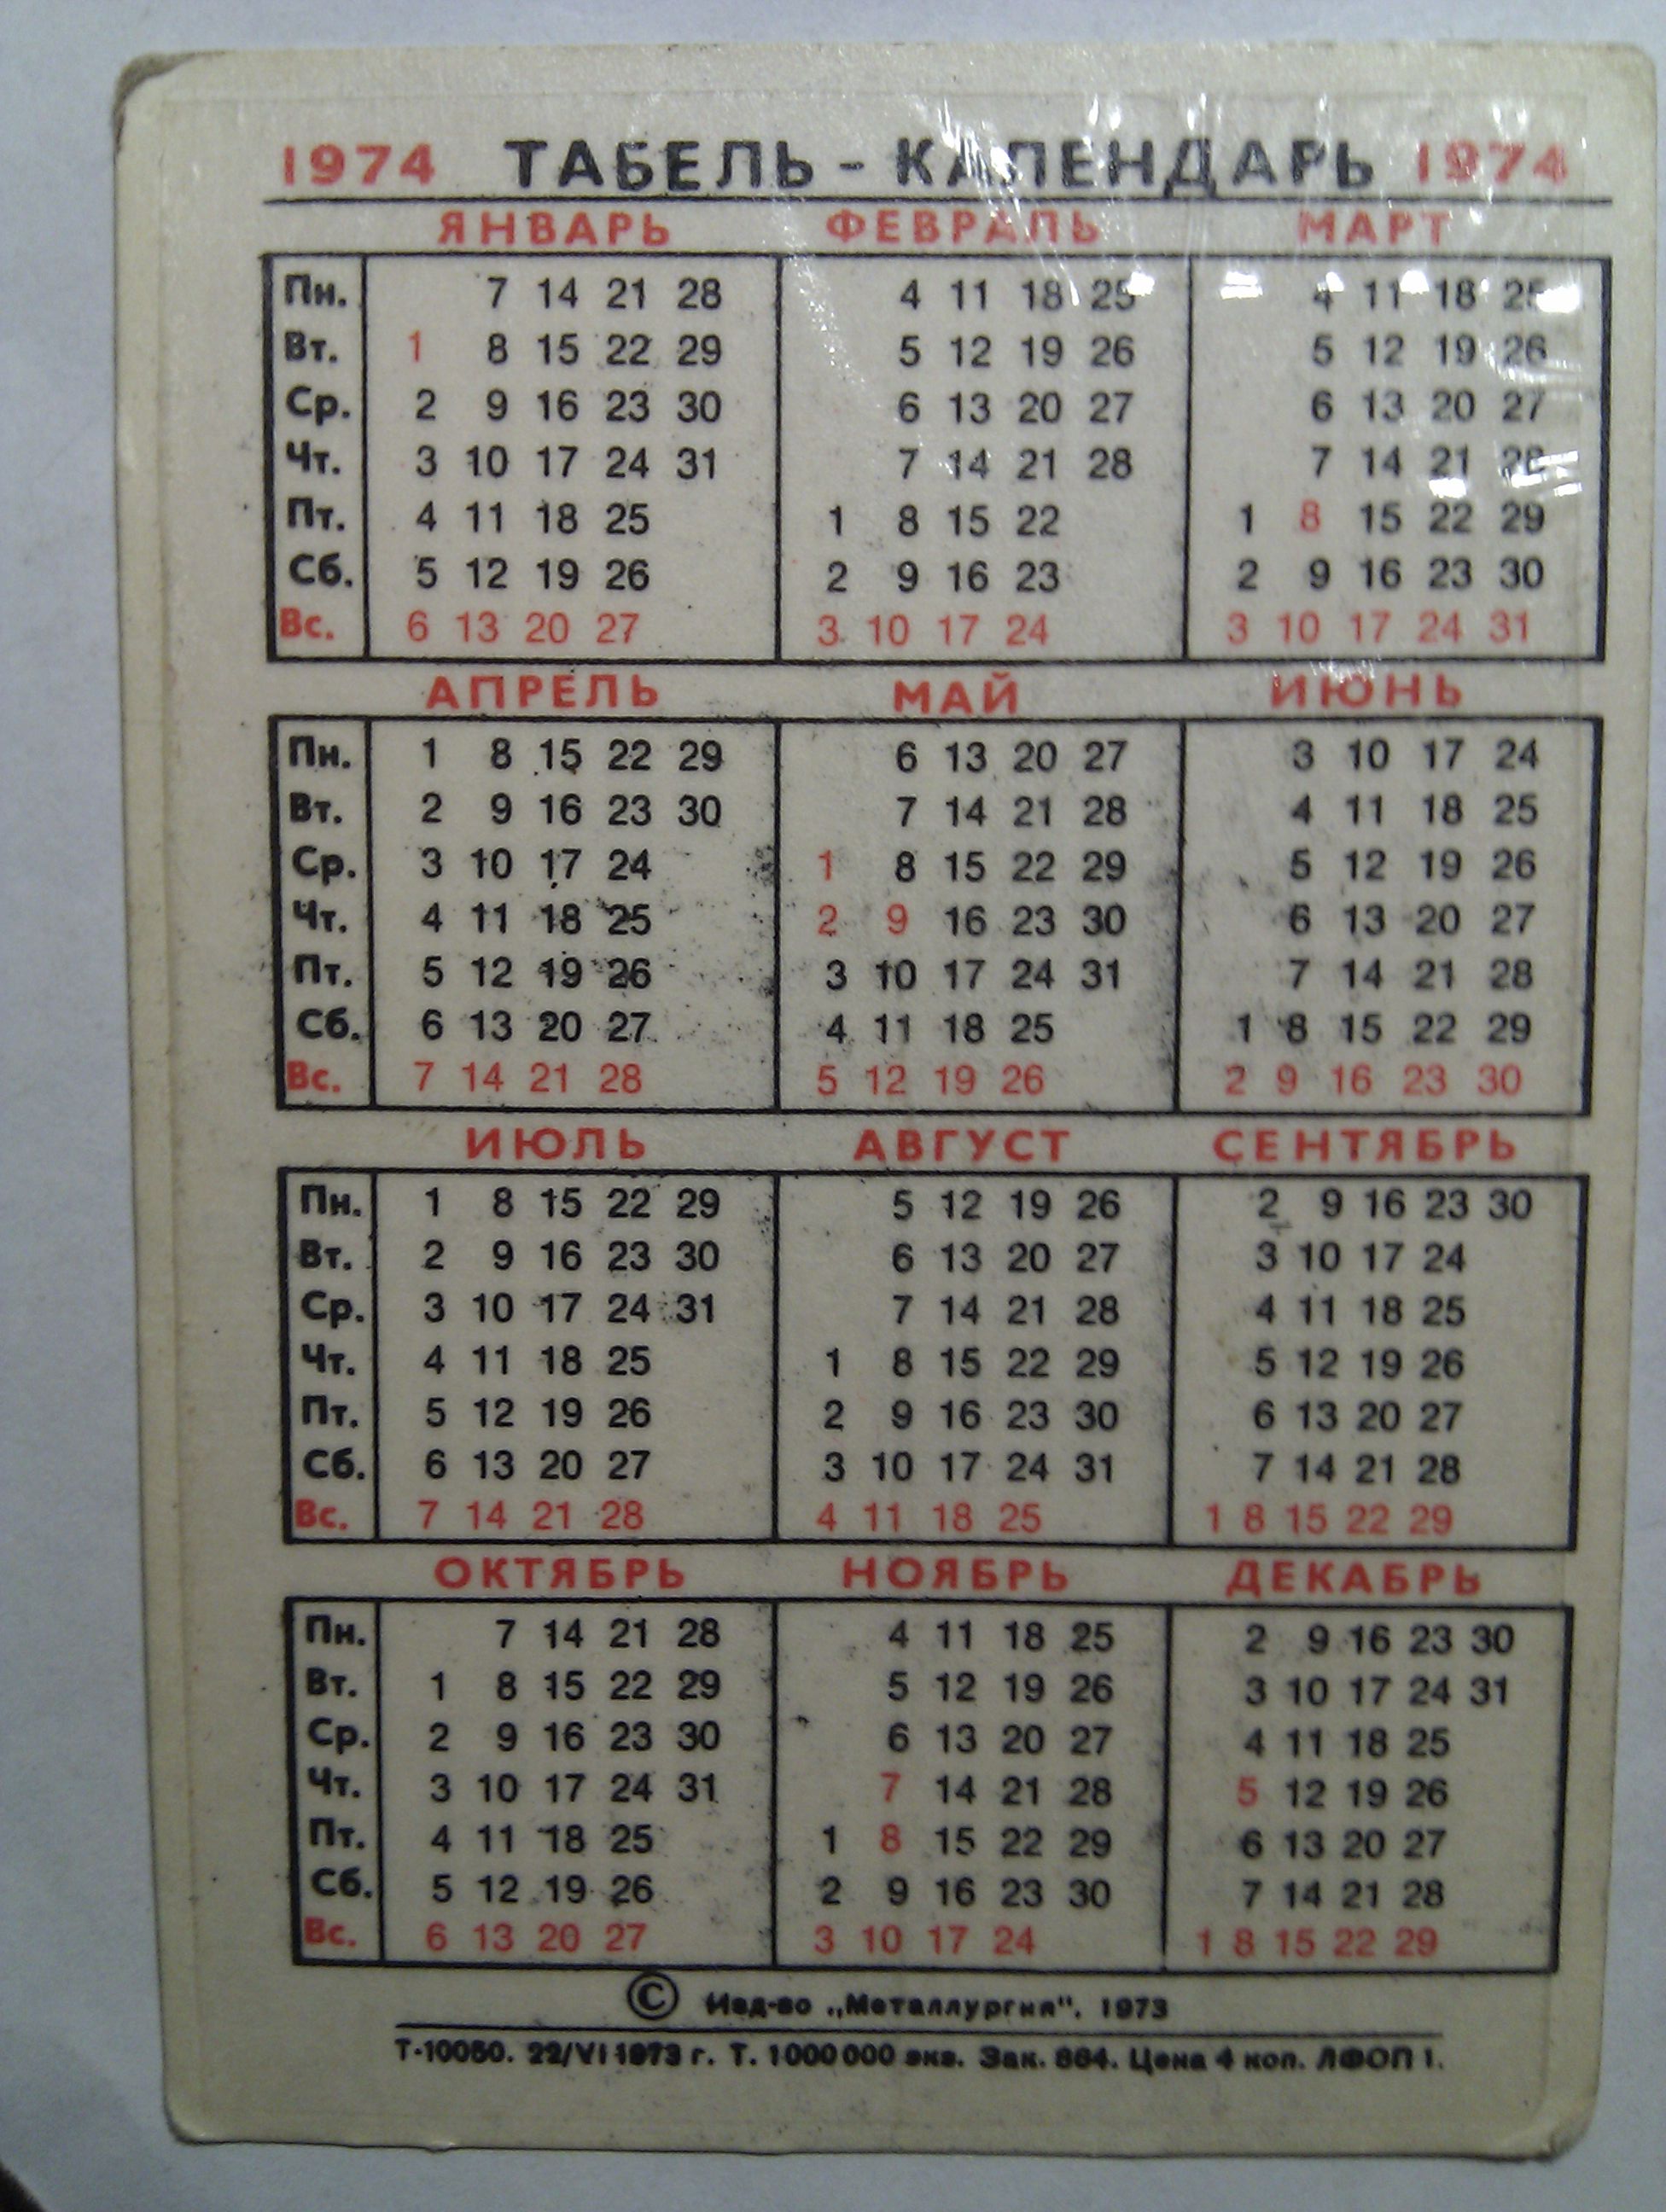 1974 ТАБЕЛЬ - КАЛЕНДАРЬ 1974
ЯНВАРЬ ФЕВРАЛЬ МАРТ
Пн. 7 14 21 28 4 11 18 25 4 11 18 25
Вт. 1 8 15 22 29 5 12 19 26 5 12 19 26
Ср. 2 9 16 23 30 6 13 20 27 6 13 20 27
Чт. 3 10 17 24 31 7 14 21 28 7 14 21 28
Пт. 4 11 18 25 1 8 15 22 1 8 15 22 29
Сб. 5 12 19 26 2 9 16 23 2 9 16 23 30
Вс. 6 13 20 27 3 10 17 24 3 10 17 24 31
АПРЕЛЬ МАЙ ИЮНЬ
Пн. 1 8 15 22 29 6 13 20 27 3 10 17 24
Вт. 2 9 16 23 30 7 14 21 28 4 11 18 25
Ср. 3 10 17 24 1 8 15 22 29 5 12 19 26
Чт. 4 11 18 25 2 9 16 23 30 6 13 20 27
Пт. 5 12 19 26 3 10 17 24 31 7 14 21 28
Сб. 6 13 20 27 4 11 18 25 1 8 15 22 29
Вс. 7 14 21 28 5 12 19 26 2 9 16 23 30
ИЮЛЬ АВГУСТ СЕНТЯБРЬ
Пн. 1 8 15 22 29 5 12 19 26 2 9 16 23 30
Вт. 2 9 16 23 30 6 13 20 27 3 10 17 24
Ср. 3 10 17 24 31 7 14 21 28 4 11 18 25
Чт. 4 11 18 25 1 8 15 22 29 5 12 19 26
Пт. 5 12 19 26 2 9 16 23 30 6 13 20 27
Сб. 6 13 20 27 3 10 17 24 31 7 14 21 28
Вс. 7 14 21 28 4 11 18 25 1 8 15 22 29
ОКТЯБРЬ НОЯБРЬ ДЕКАБРЬ
Пн. 7 14 21 28 4 11 18 25 2 9 16 23 30
Вт. 1 8 15 22 29 5 12 19 26 3 10 17 24 31
Ср. 2 9 16 23 30 6 13 20 27 4 11 18 25
Чт. 3 10 17 24 31 7 14 21 28 5 12 19 26
Пт. 4 11 18 25 1 8 15 22 29 6 13 20 27
Сб. 5 12 19 26 2 9 16 23 30 7 14 21 28
Вс. 6 13 20 27 3 10 17 24 1 8 15 22 29
© Изд-во „Металлургия". 1973
Т-10050. 22/VI 1973 г. Т. 1000000 экз. Зак. 864. Цена 4 коп. ЛФОП 1.